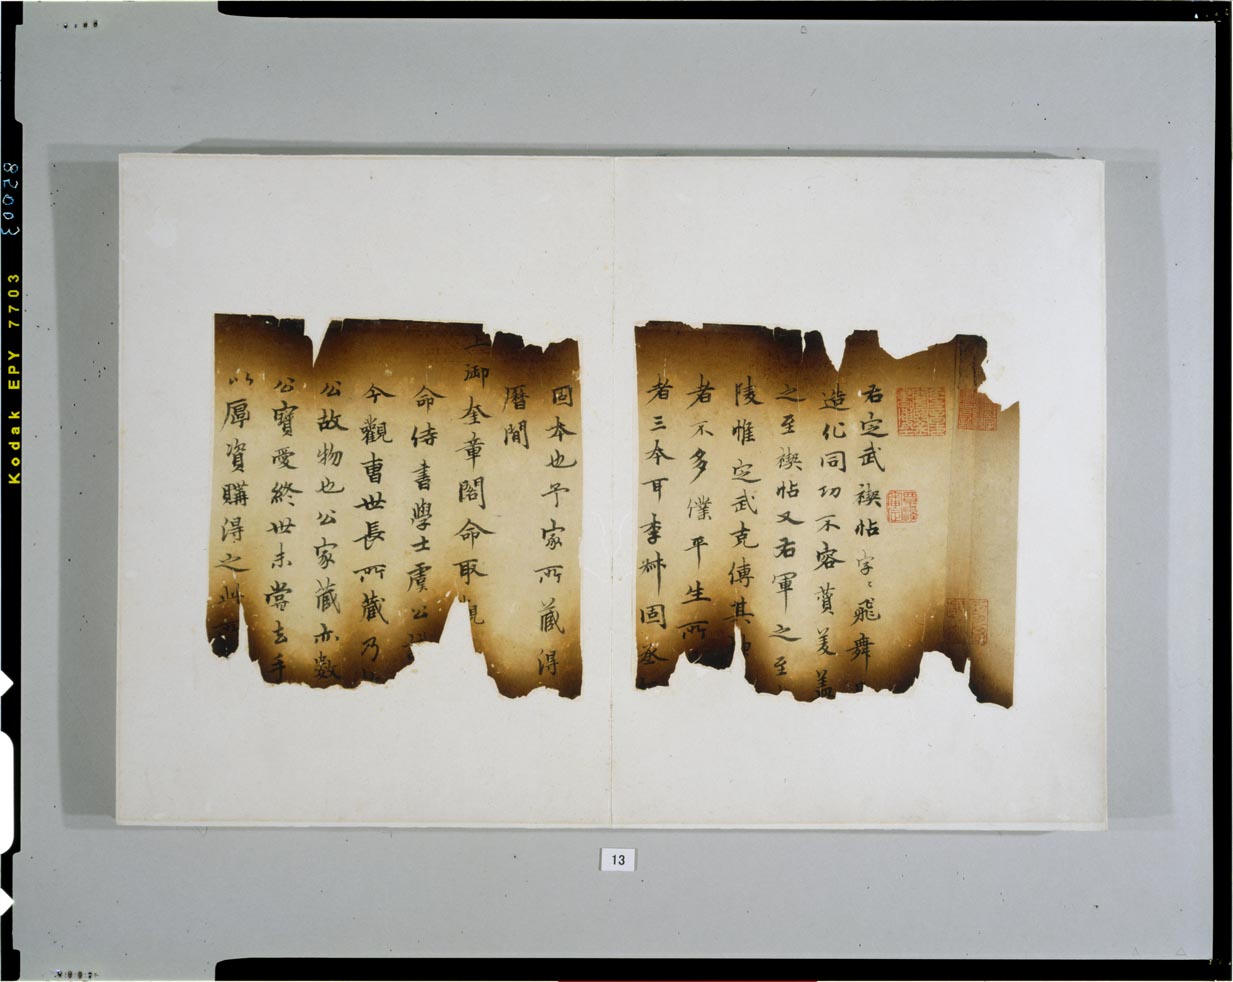 右定武禊帖字〻飛舞
造化同功不容賛美蓋
之至禊帖又右軍之至
陵惟定武克傳其
者不多僕平生所
者三本耳李叔固丞
固本也予家所藏得
曆間
上御奎章閣命取觀
命侍書學士虞公
今觀曹世長所藏乃
公故物也公家藏亦數
公寶愛終世未嘗去手
以厚資購得之此
13
Kodak EPY 7703
82003